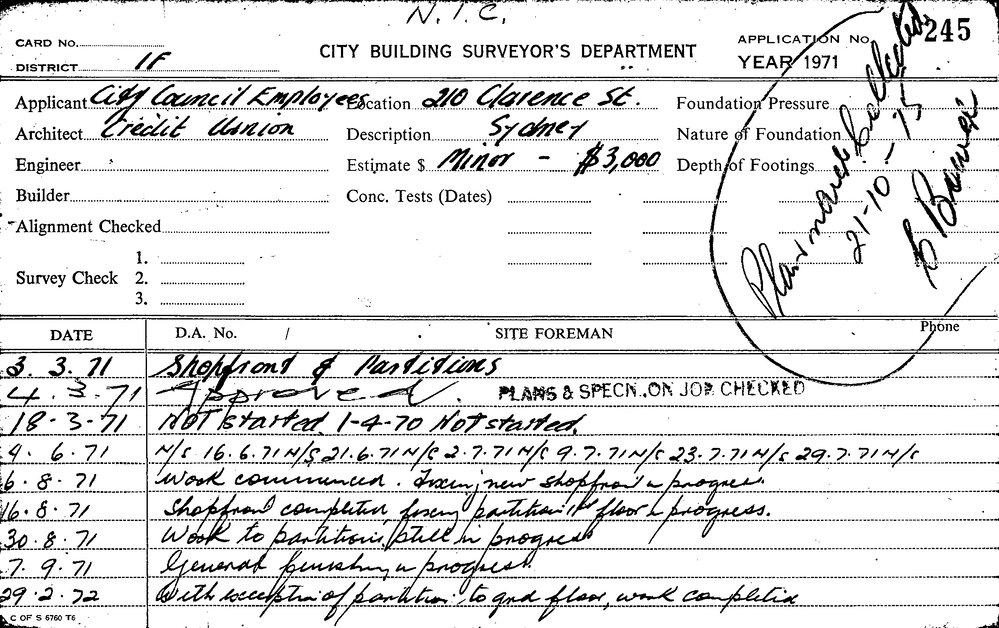 N.I.C.
CARD No.
CITY BUILDING SURVEYOR'S DEPARTMENT
APPLICATION No. 245
DISTRICT 1F
YEAR 1971
Applicant City Council Employees Location 210 Clarence St. Foundation Pressure
Architect Credit Union Description Sydney Nature of Foundation
Engineer Estimate $ Minor - $3,000 Depth of Footings
Builder Conc. Tests (Dates)
Alignment Checked
Survey Check 1.
2.
3.
Plan marked Collected
21-10-75
DATE D.A. No. / SITE FOREMAN Phone
3.3.71 Shopfront & Partitions
4.3.71 Approved. PLANS & SPECN. ON JOB CHECKED
18-3-71 Not started. 1-4-70 Not started.
4.6.71 N/S 16.6.71 N/S 21.6.71 N/S 2.7.71 N/S 9.7.71 N/S 23.7.71 N/S 29.7.71 N/S
6.8.71 Work commenced. Fixing new shopfront in progress.
16.8.71 Shopfront completed, fixing partition floor in progress.
30.8.71 Work to partitions still in progress
7.9.71 General finishing in progress.
29.2.72 With exception of partition to gnd floor, work completed
C OF S 6760 T6